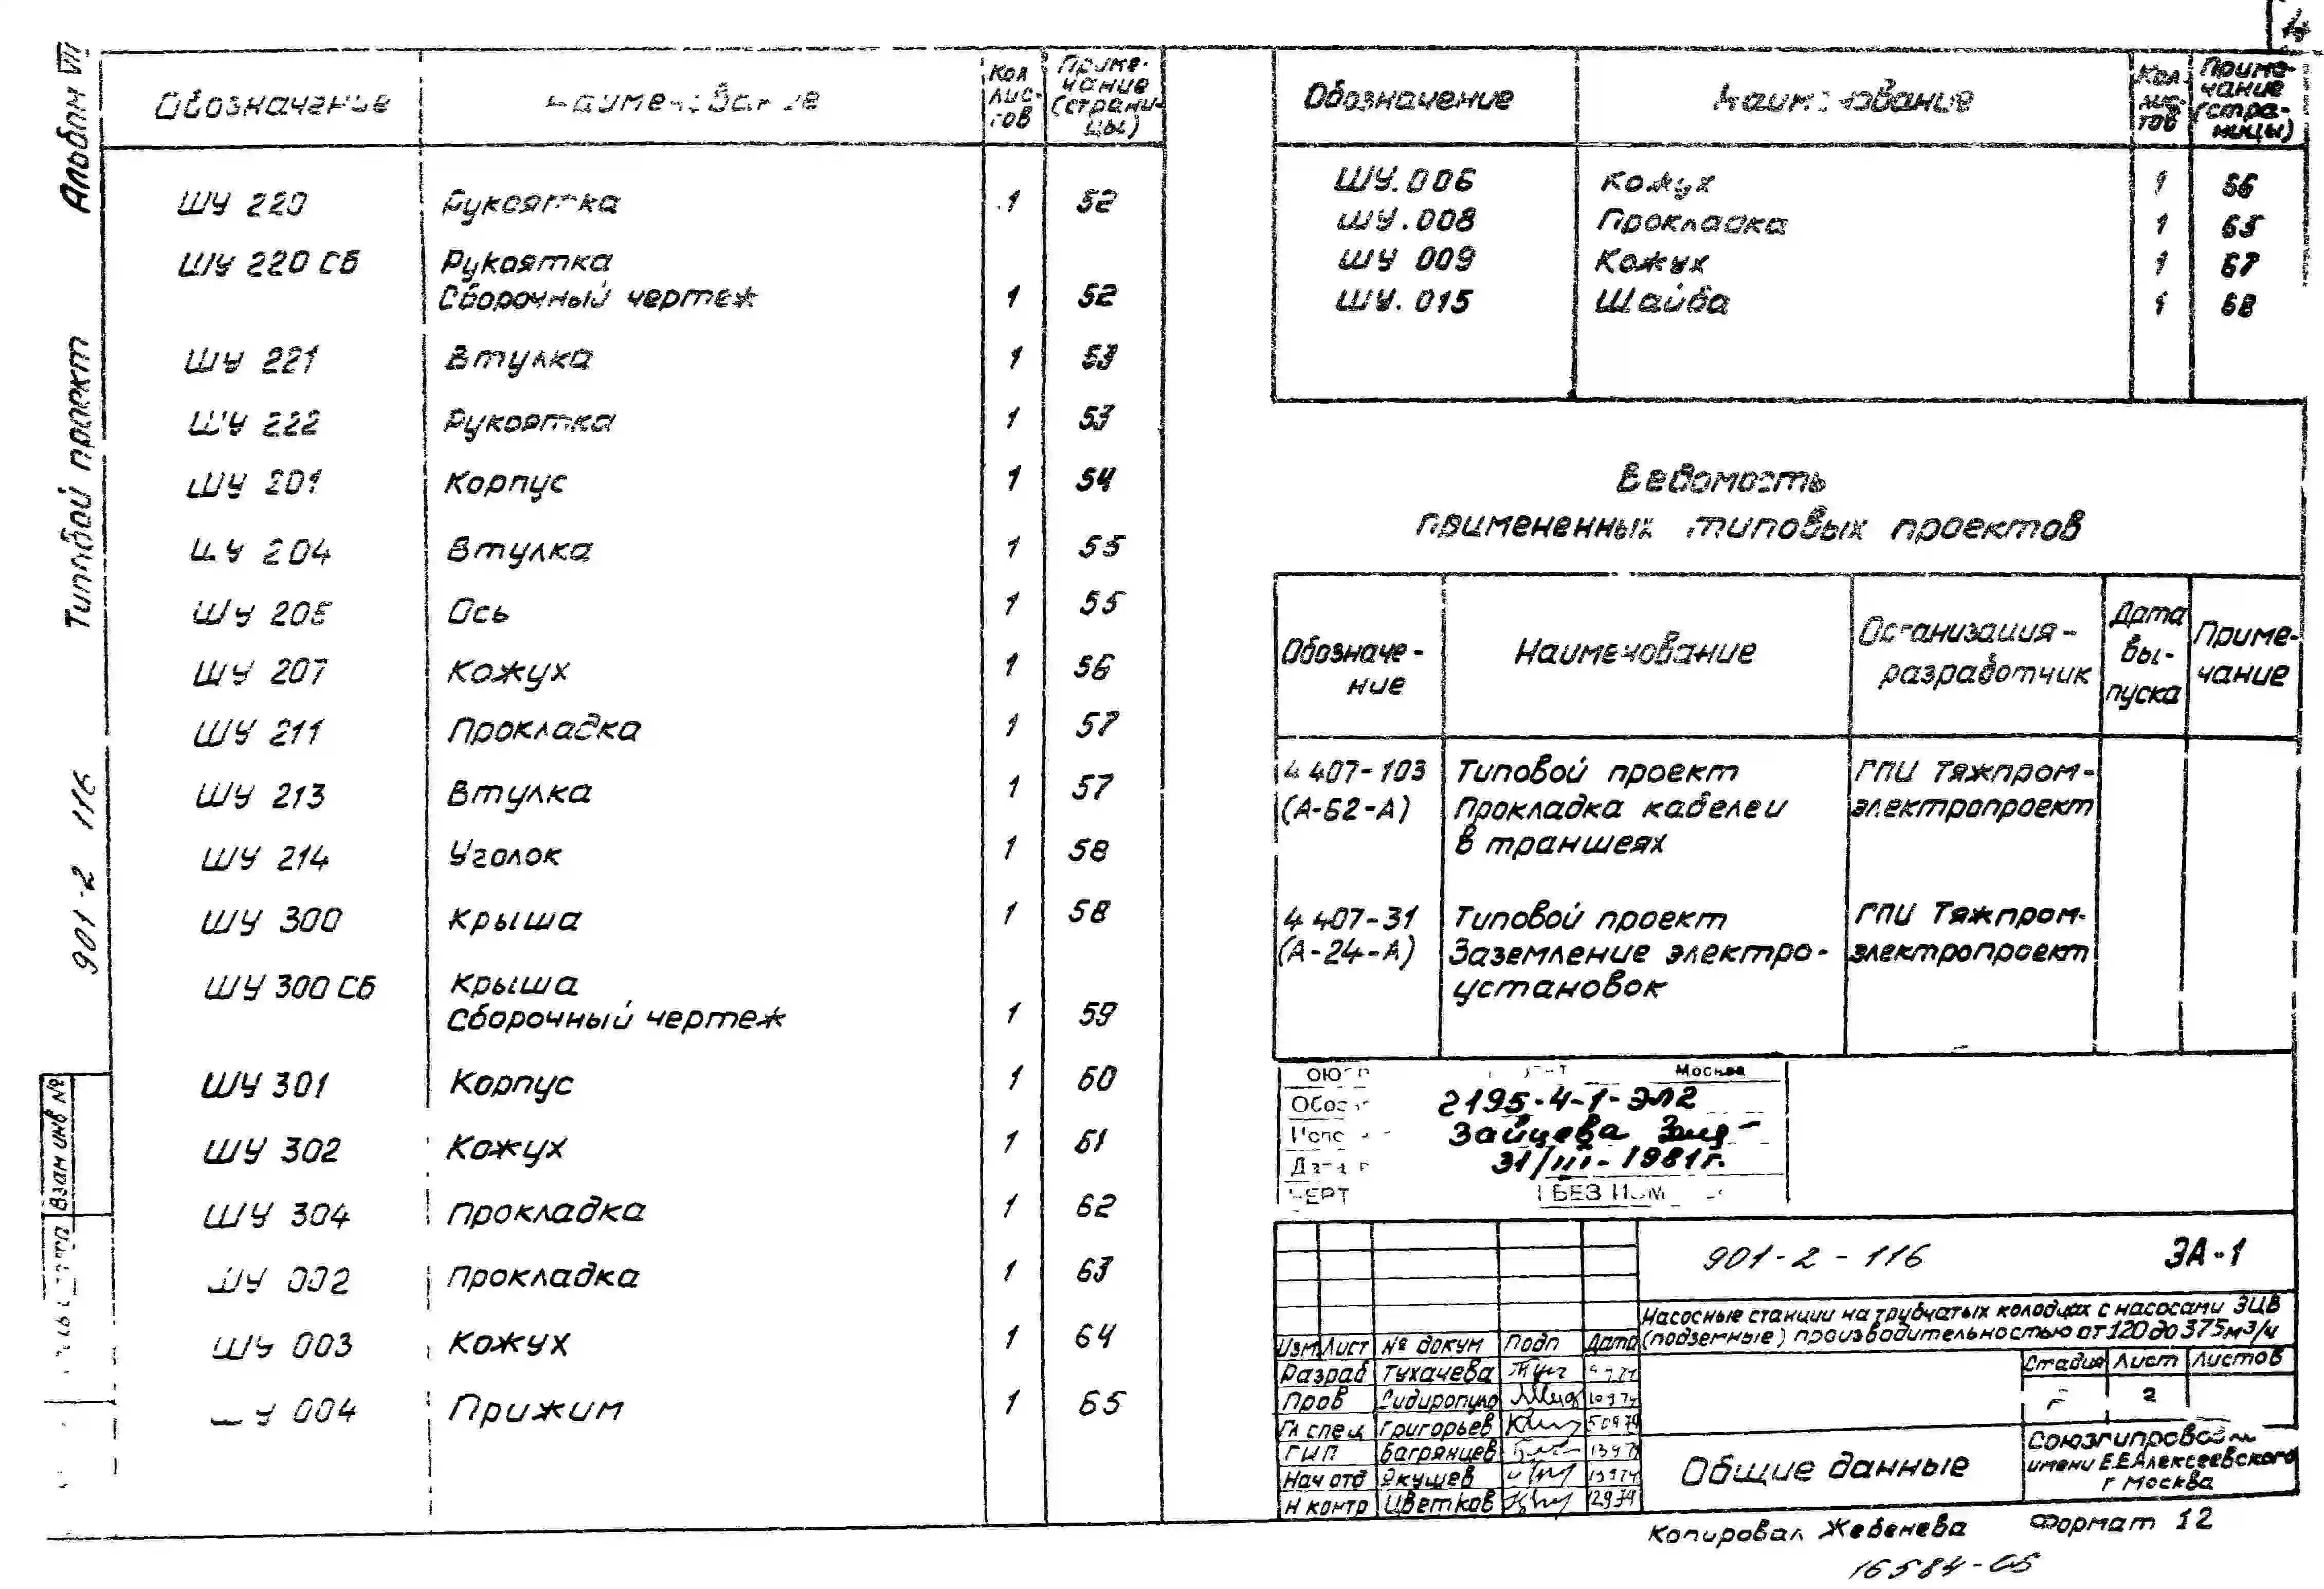 4
Альбом VII
Типовой проект
901-2 116
Взам инв №
Обозначение Наименование Кол лис-тов Приме-чание (страни-цы)
ШУ 220 Рукоятка 1 52
ШУ 220 СБ Рукоятка
Сборочный чертеж 1 52
ШУ 221 Втулка 1 53
ШУ 222 Рукоятка 1 53
ШУ 201 Корпус 1 54
ШУ 204 Втулка 1 55
ШУ 205 Ось 1 55
ШУ 207 Кожух 1 56
ШУ 211 Прокладка 1 57
ШУ 213 Втулка 1 57
ШУ 214 Уголок 1 58
ШУ 300 Крыша 1 58
ШУ 300 СБ Крыша
Сборочный чертеж 1 59
ШУ 301 Корпус 1 60
ШУ 302 Кожух 1 61
ШУ 304 Прокладка 1 62
ШУ 002 Прокладка 1 63
ШУ 003 Кожух 1 64
ШУ 004 Прижим 1 65
Обозначение Наименование Кол. лис-тов Приме-чание (стра-ницы)
ШУ.006 Кожух 1 66
ШУ.008 Прокладка 1 65
ШУ 009 Кожух 1 67
ШУ.015 Шайба 1 68
Ведомость
примененных типовых проектов
Обозначе-ние Наименование Организация-разработчик Дата вы-пуска Приме-чание
4 407-103 Типовой проект ГПИ Тяжпром-
(А-62-А) Прокладка кабелей электропроект
в траншеях
4 407-31 Типовой проект ГПИ Тяжпром-
(А-24-А) Заземление электро- электропроект
установок
Москва
2195-4-1-ЭЛ2
Зайцева
31/III-1981г.
БЕЗ ИЗМ
901-2-116 ЭА-1
Насосные станции на трубчатых колодцах с насосами ЭЦВ
(подземные) производительностью от 120 до 375 м3/ч
Изм Лист № докум Подп Дата
Стадия Лист Листов
2
Разраб Тухачева
Пров Сидиропуло 10974
Гл спец Григорьев 50974
ГИП Багрянцев
Нач отд Якушев 13974
Н контр Цветков 12974
Общие данные
Союзгипроводхоз
имени Е.Е.Алексеевского
г Москва
Копировал Жебенева Формат 12
16584-05